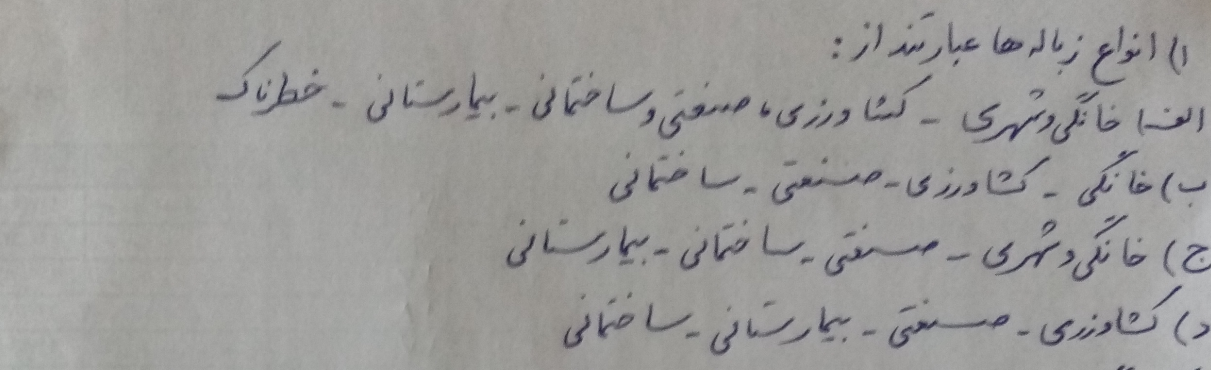 ۱) انواع زباله ها عبارتند از :
الف) خانگی و شهری - کشاورزی، صنعتی و ساختمانی - بیمارستانی - خطرناک
ب) خانگی - کشاورزی - صنعتی - ساختمانی
ج) خانگی و شهری - صنعتی - ساختمانی - بیمارستانی
د) کشاورزی - صنعتی - بیمارستانی - ساختمانی